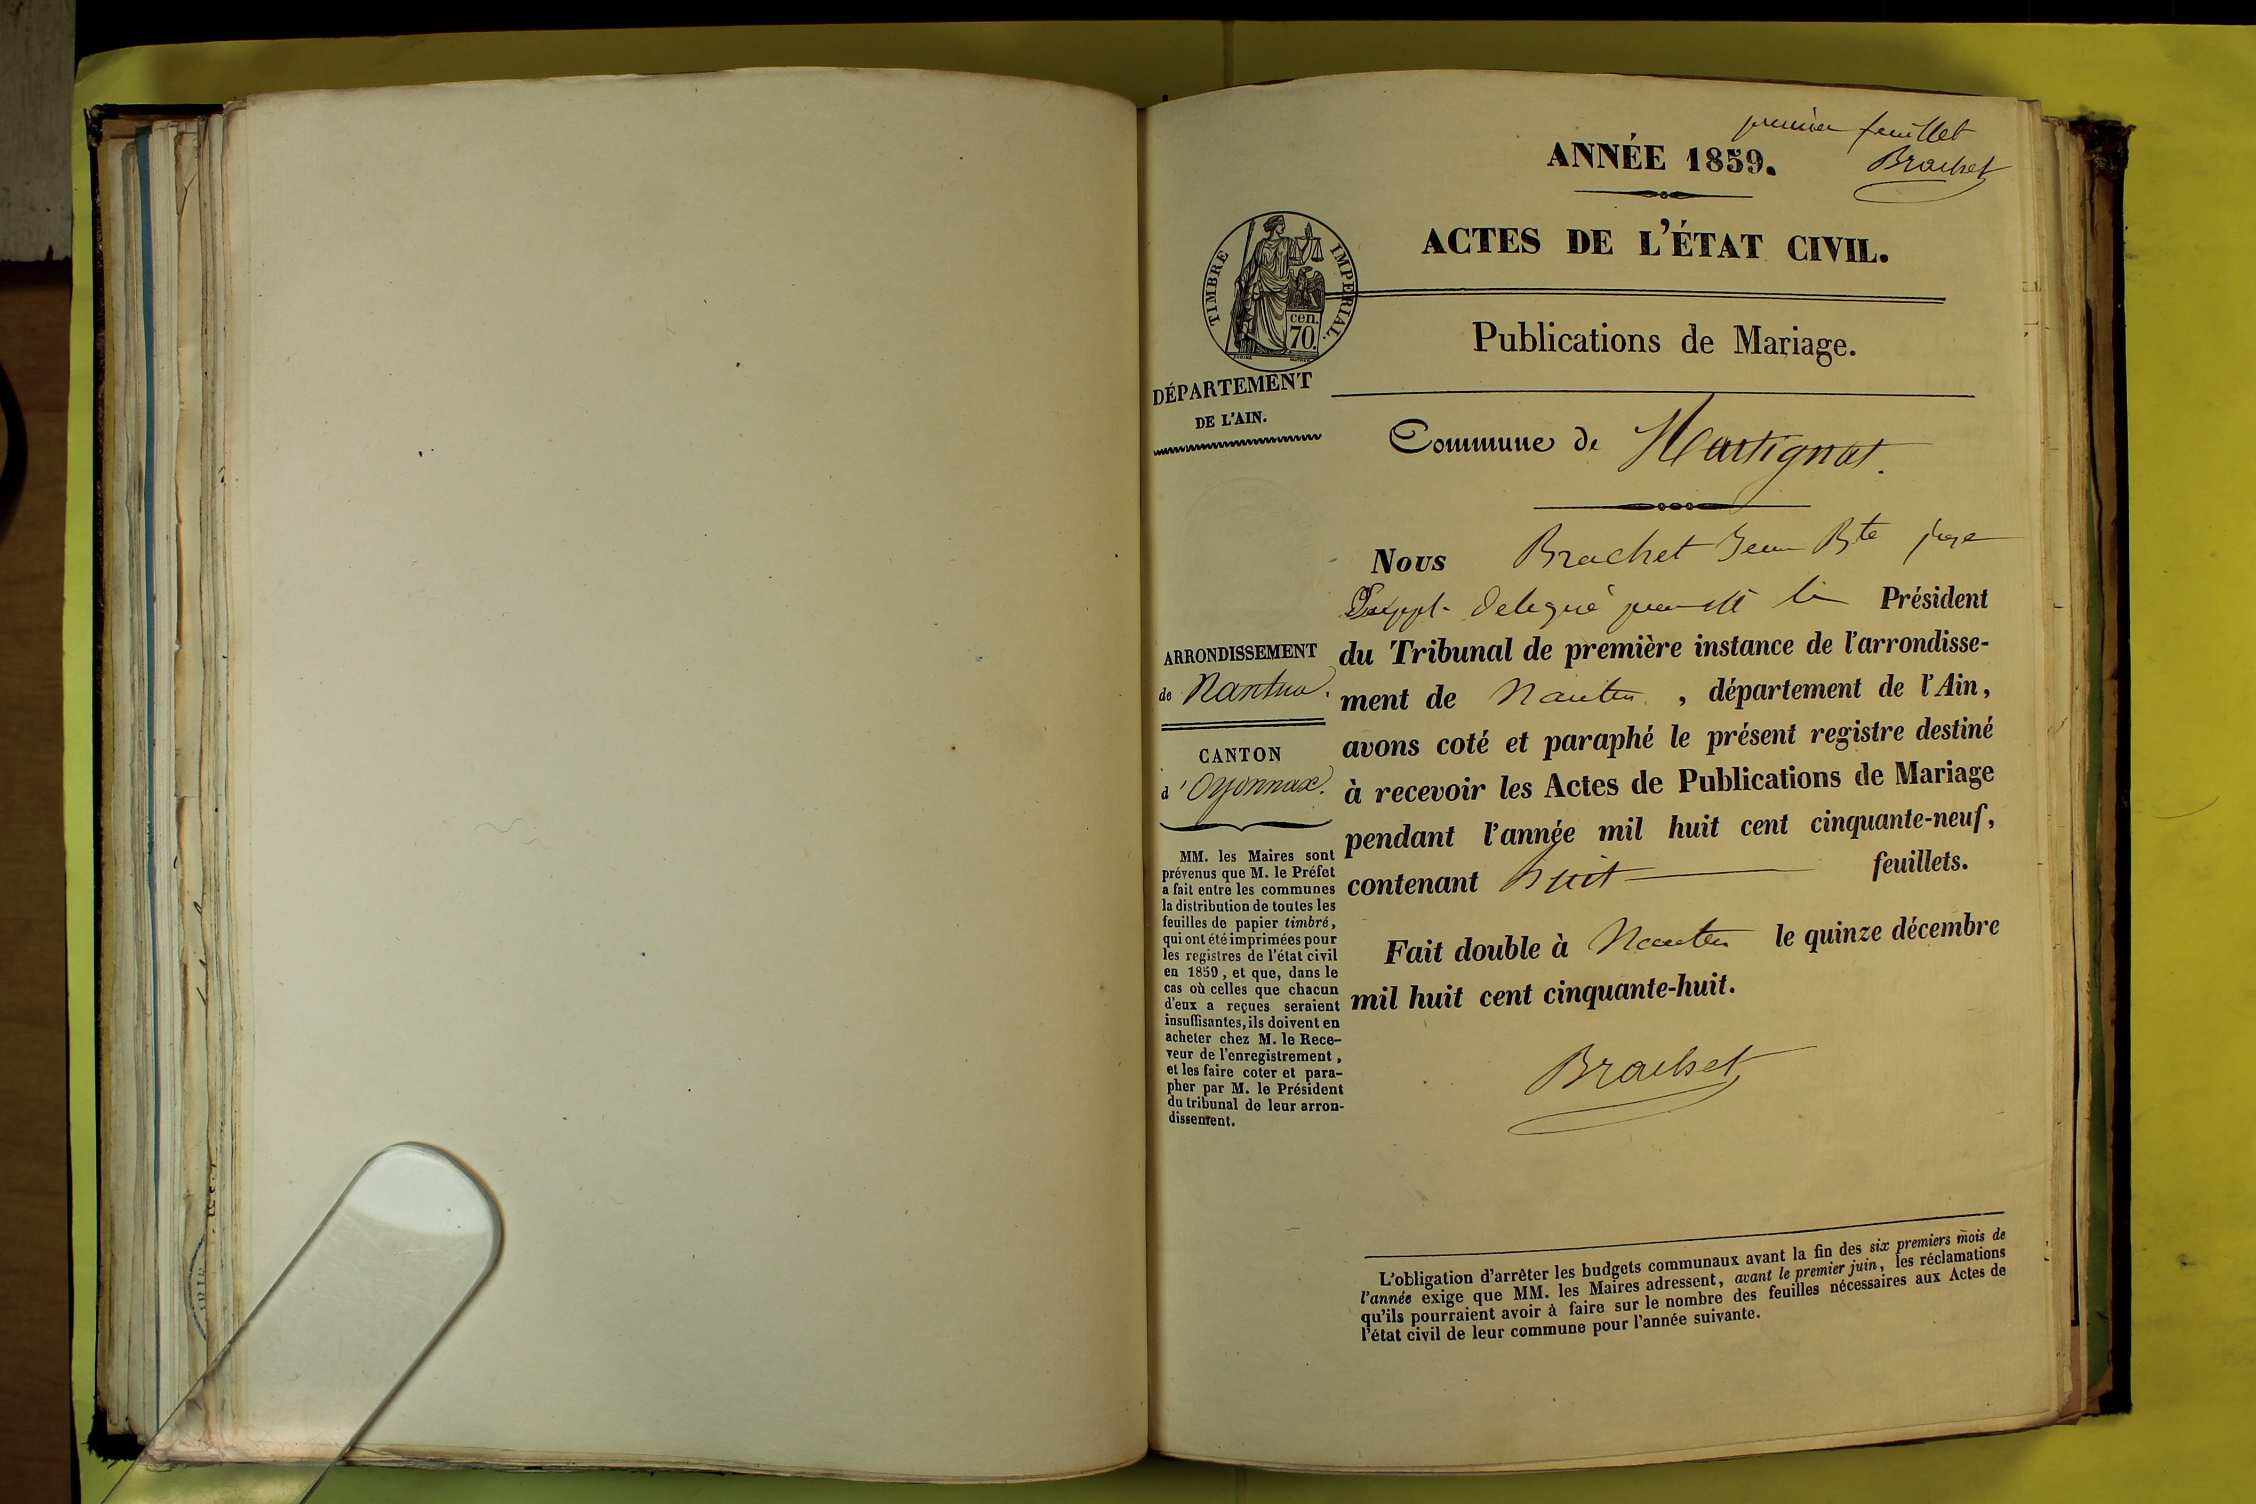 premier feuillet
Brachet
ANNÉE 1859.
ACTES DE L'ÉTAT CIVIL.
TIMBRE IMPÉRIAL.
cen.
70.
Publications de Mariage.
DÉPARTEMENT
DE L'AIN.
Commune de Martignat.
Nous Brachet Jean Bte juge
Suppt. délégué par M le Président
du Tribunal de première instance de l'arrondisse-
ment de Nantua, département de l'Ain,
avons coté et paraphé le présent registre destiné
à recevoir les Actes de Publications de Mariage
pendant l'année mil huit cent cinquante-neuf,
contenant huit feuillets.
Fait double à Nantua le quinze décembre
mil huit cent cinquante-huit.
Brachet
ARRONDISSEMENT
de Nantua.
CANTON
d'Oyonnax.
MM. les Maires sont
prévenus que M. le Préfet
a fait entre les communes
la distribution de toutes les
feuilles de papier timbré,
qui ont été imprimées pour
les registres de l'état civil
en 1859, et que, dans le
cas où celles que chacun
d'eux a reçues seraient
insuffisantes, ils doivent en
acheter chez M. le Rece-
veur de l'enregistrement,
et les faire coter et para-
pher par M. le Président
du tribunal de leur arron-
dissement.
L'obligation d'arrêter les budgets communaux avant la fin des six premiers mois de
l'année exige que MM. les Maires adressent, avant le premier juin, les réclamations
qu'ils pourraient avoir à faire sur le nombre des feuilles nécessaires aux Actes de
l'état civil de leur commune pour l'année suivante.